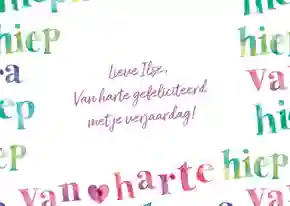 hiep
hiep
ra
va
hiep
hi
Lieve Ilse,
Van harte gefeliciteerd
met je verjaardag!
ep
van harte hiep